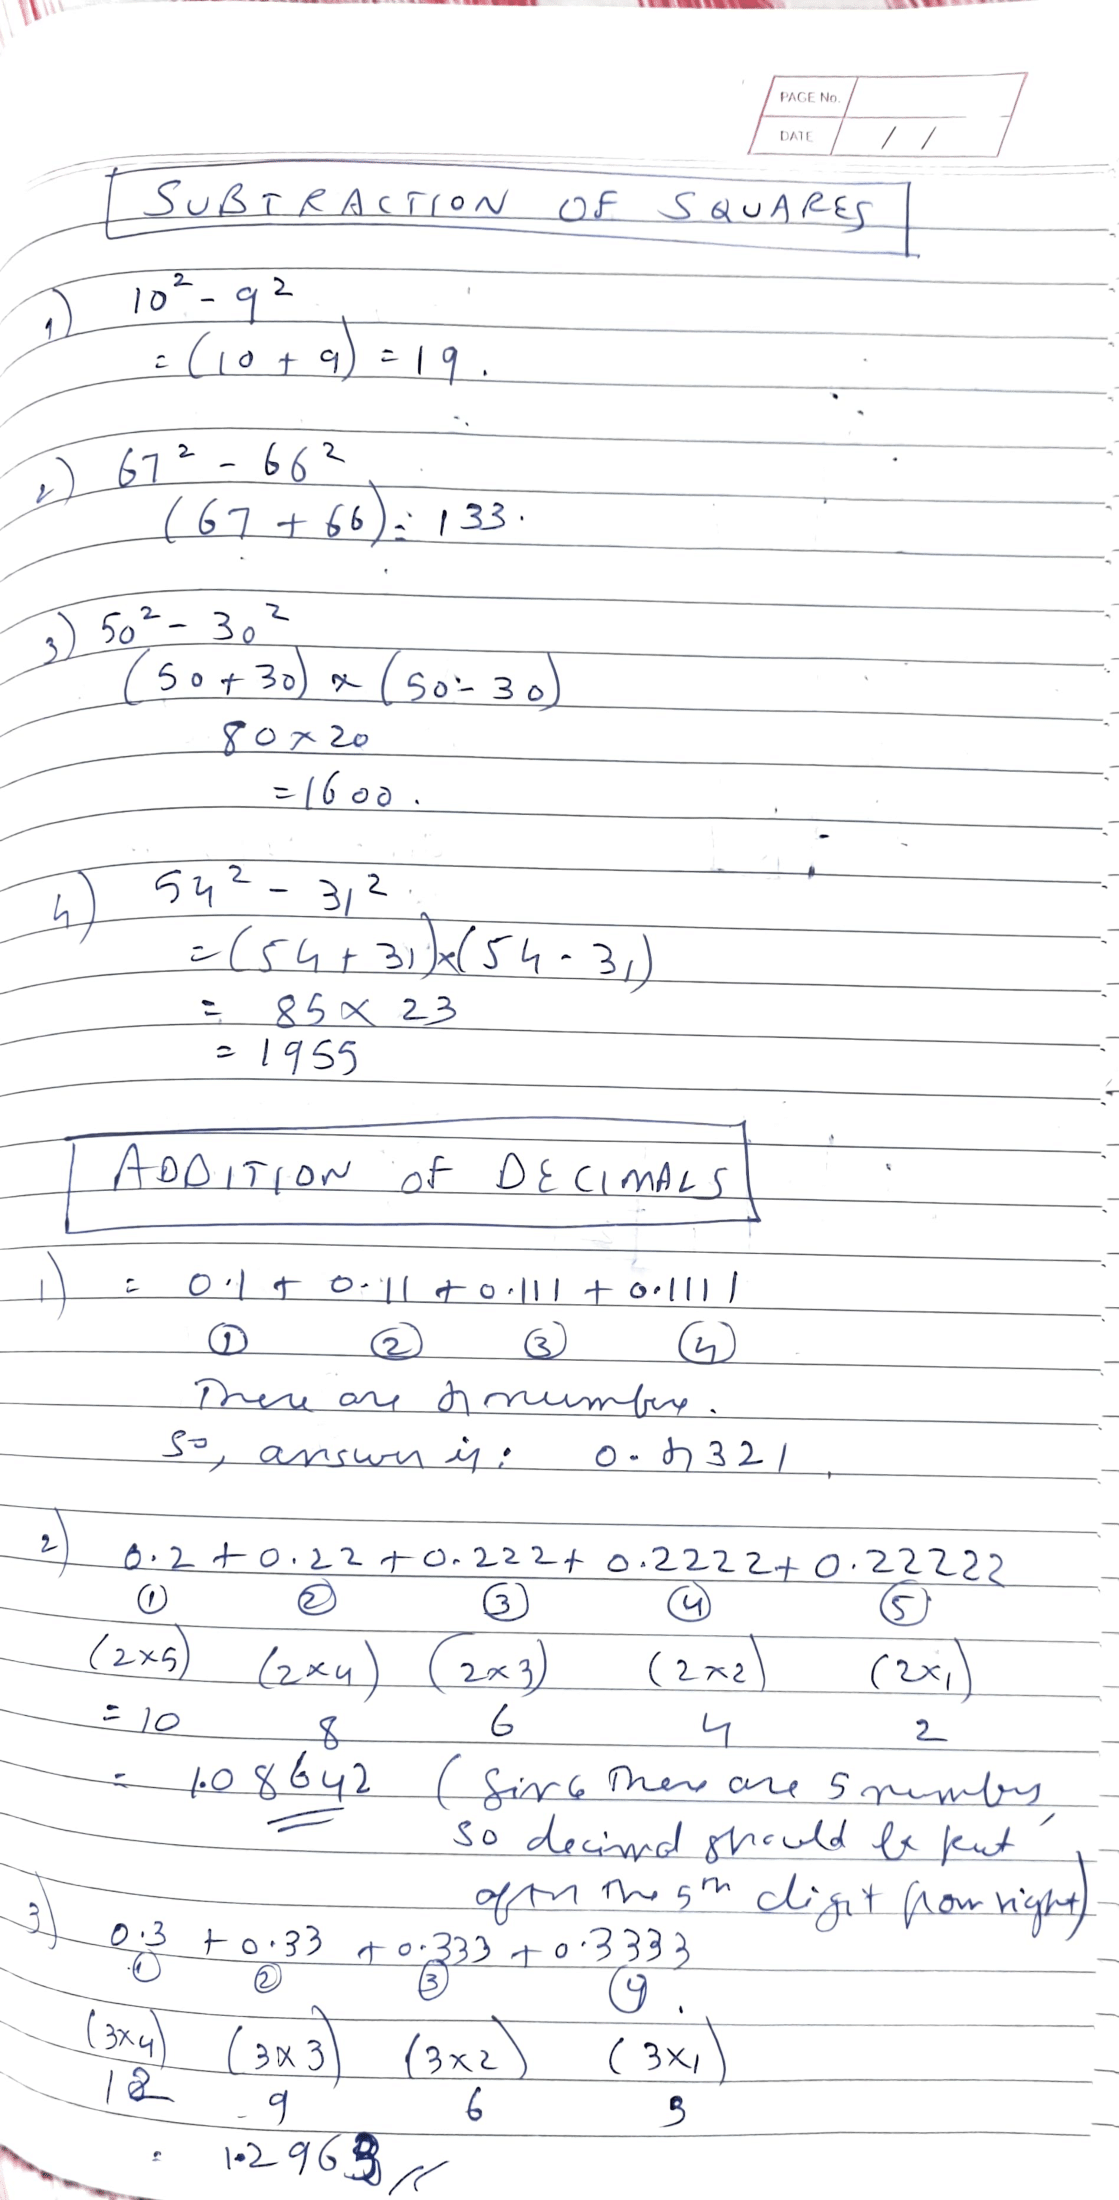 PAGE No.
DATE / /
SUBTRACTION OF SQUARES
1) 10² - 9²
= (10 + 9) = 19.
2) 67² - 66²
(67 + 66) = 133.
3) 50² - 30²
(50 + 30) × (50 - 30)
80 × 20
= 1600.
4) 54² - 31²
= (54 + 31) × (54 - 31)
= 85 × 23
= 1955
ADDITION OF DECIMALS
1) = 0.1 + 0.11 + 0.111 + 0.1111
① ② ③ ④
There are 4 numbers.
So, answer is: 0.4321
2) 0.2 + 0.22 + 0.222 + 0.2222 + 0.22222
① ② ③ ④ ⑤
(2×5) (2×4) (2×3) (2×2) (2×1)
= 10 8 6 4 2
= 1.08642 (Since there are 5 numbers,
so decimal should be put
after the 5th digit from right)
3) 0.3 + 0.33 + 0.333 + 0.3333
① ② ③ ④.
(3×4) (3×3) (3×2) (3×1)
12 9 6 3
= 1.2963 //